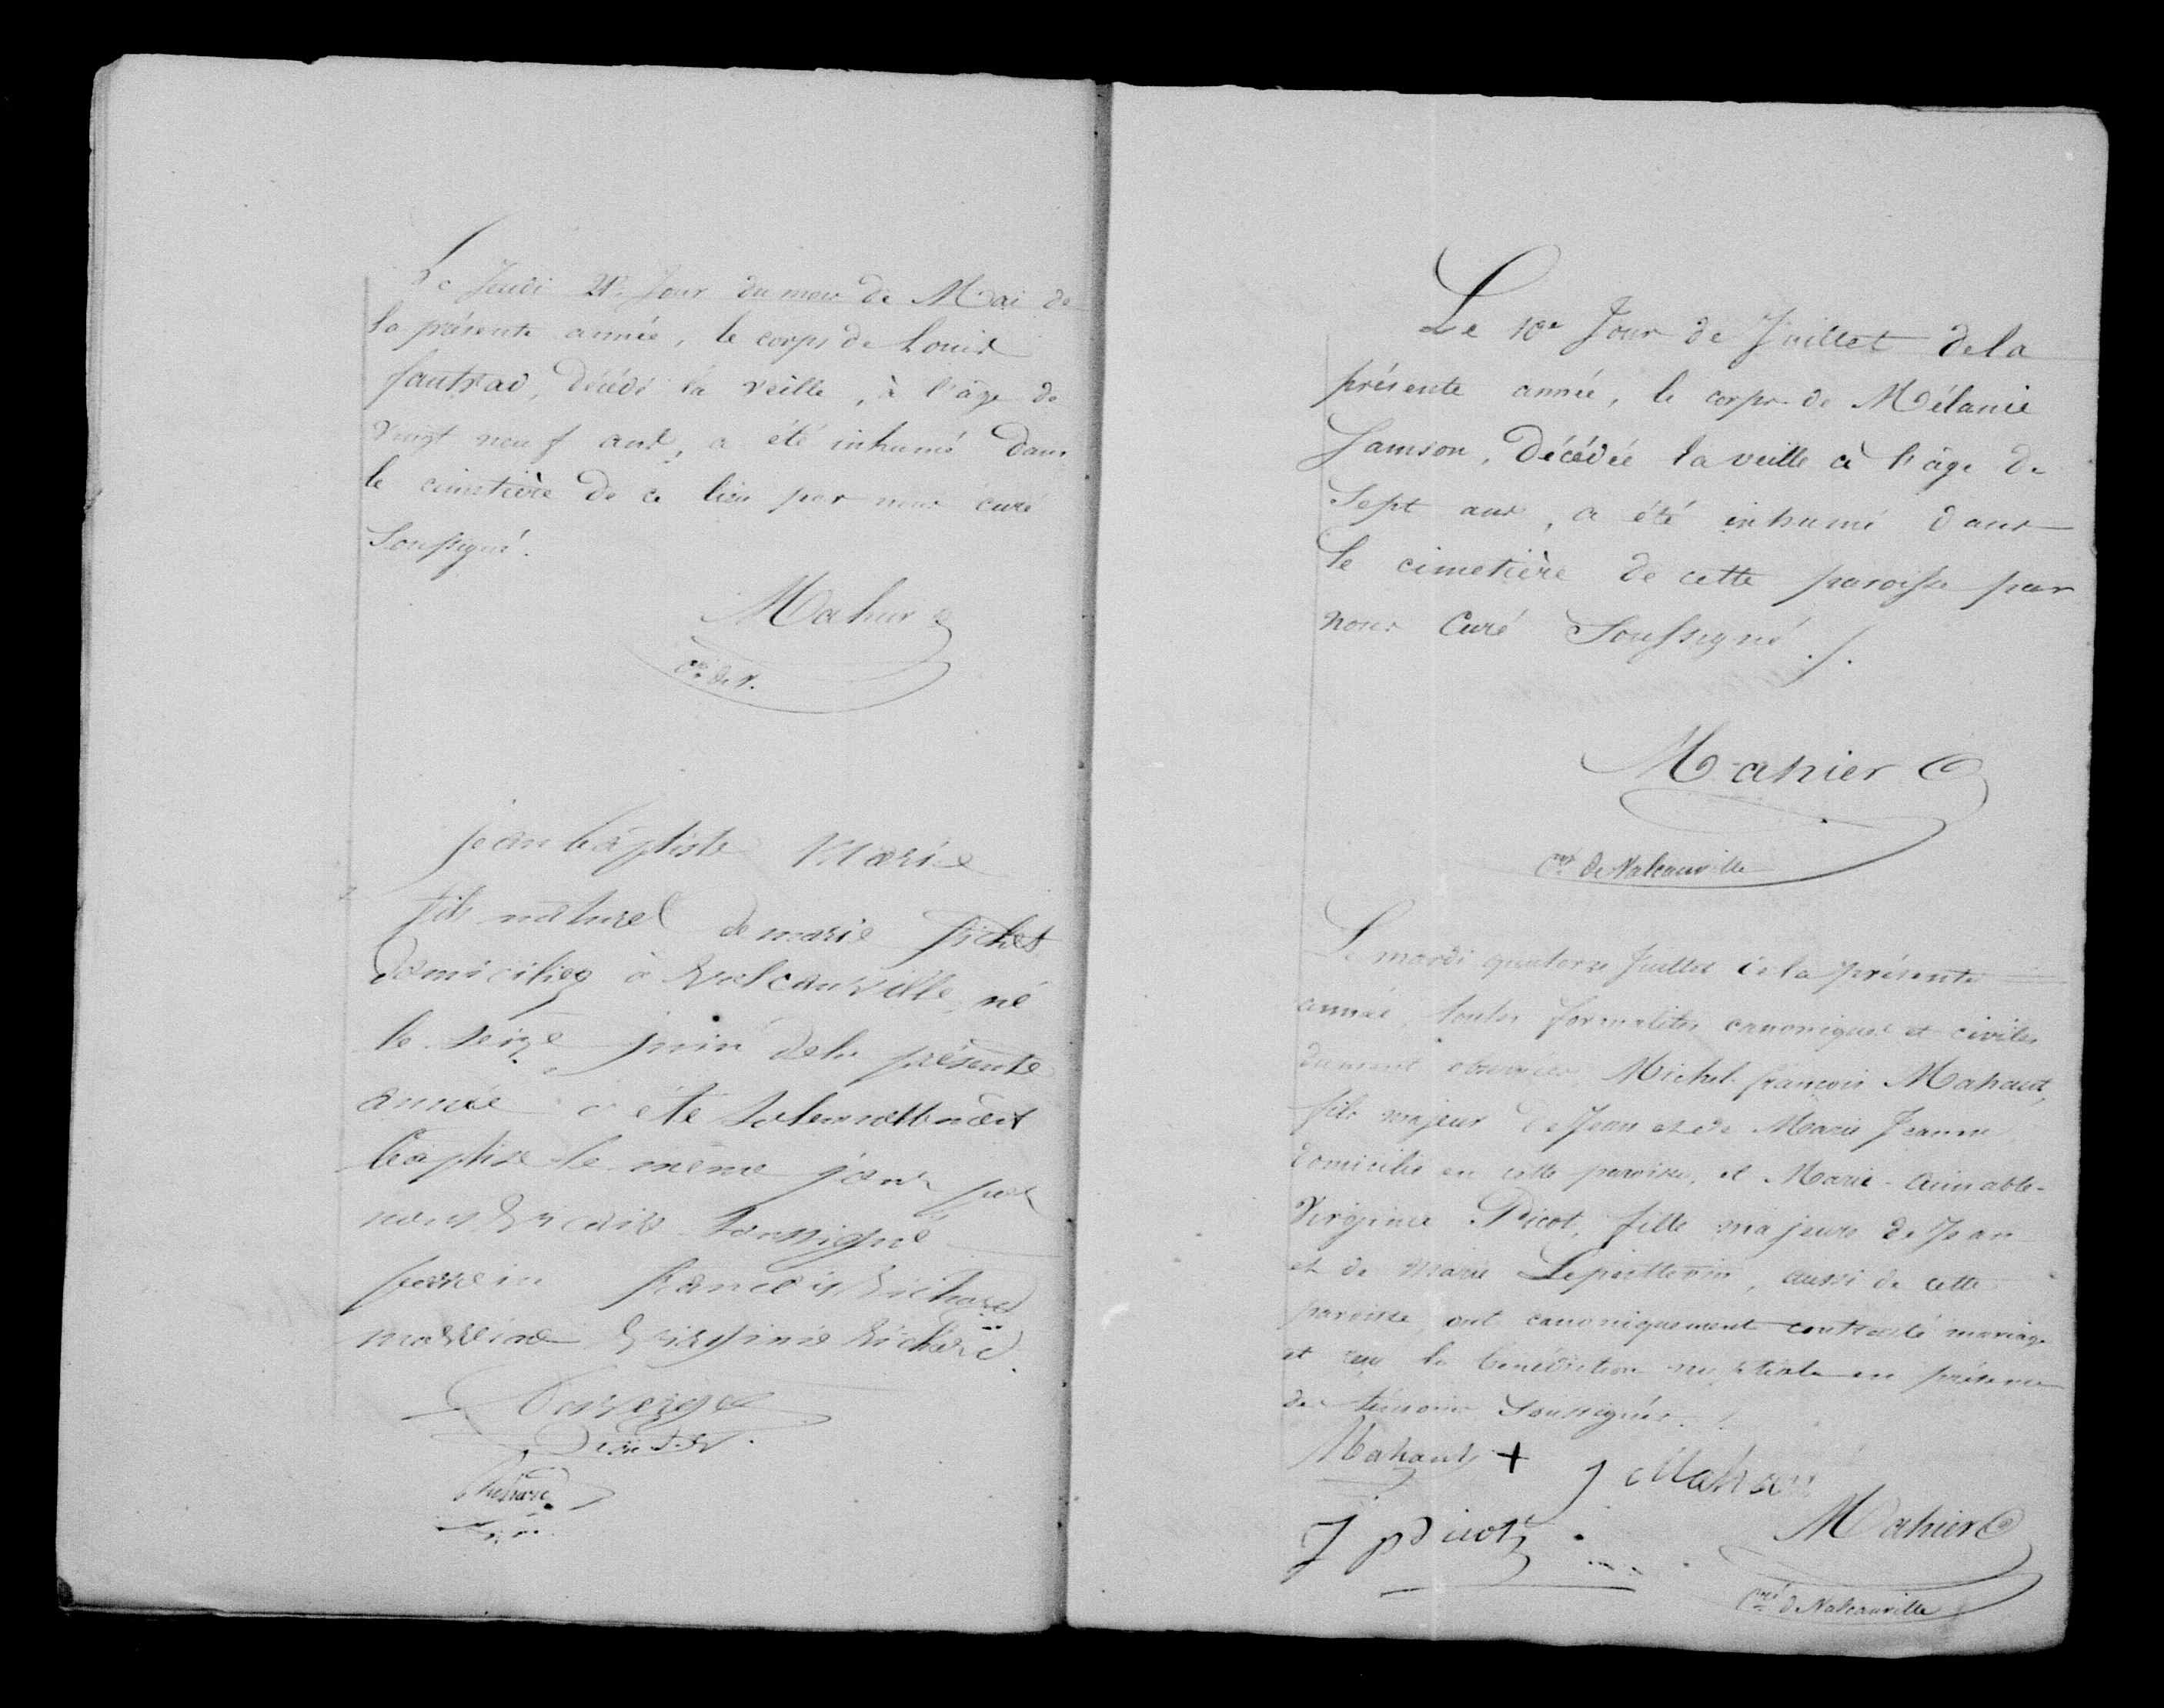 Le Jeudi 21e Jour du mois de Mai de
la présente année, le corps de Louis
fautrad, décédé la veille, à l'âge de
Vingt neuf ans, a été inhumé dans
le cimetière de ce lieu par nous curé
Soussigné.
Mahier
Cré de V.
jean baptiste Marie
fils naturel de marie fichet
domiciliée à Valcanville né
le seize juin dela présente
année a été solennellement
baptisé le même jour par
nous vicaire soussigné
parrein françois Richard
marreine virginie Richard
Le 10e Jour de Juillet dela
présente année, le corps de Mélanie
Samson, Décédée la veille à l'âge de
Sept ans, a été inhumé dans
le cimetière de cette paroisse par
nous Curé Soussigné ./.
Mahier
Cré de Valcanville
Le mardi quatorze Juillet dela présente
année, toutes formalités canoniques et civiles
dument observées, Michel françois Mahaut,
fils majeur de Jean et de Marie Jeanne
domicilié en cette paroisse, et Marie-Aimable-
Virginie Picot, fille majeure de Jean
et de Marie Lepoittevin, aussi de cette
paroisse, ont canoniquement contracté mariage
et reçu la bénédiction nuptiale en présence
des témoins Soussignés.
Mahaut + J Mahaut
J picot
Mahier
Cré de Valcanville